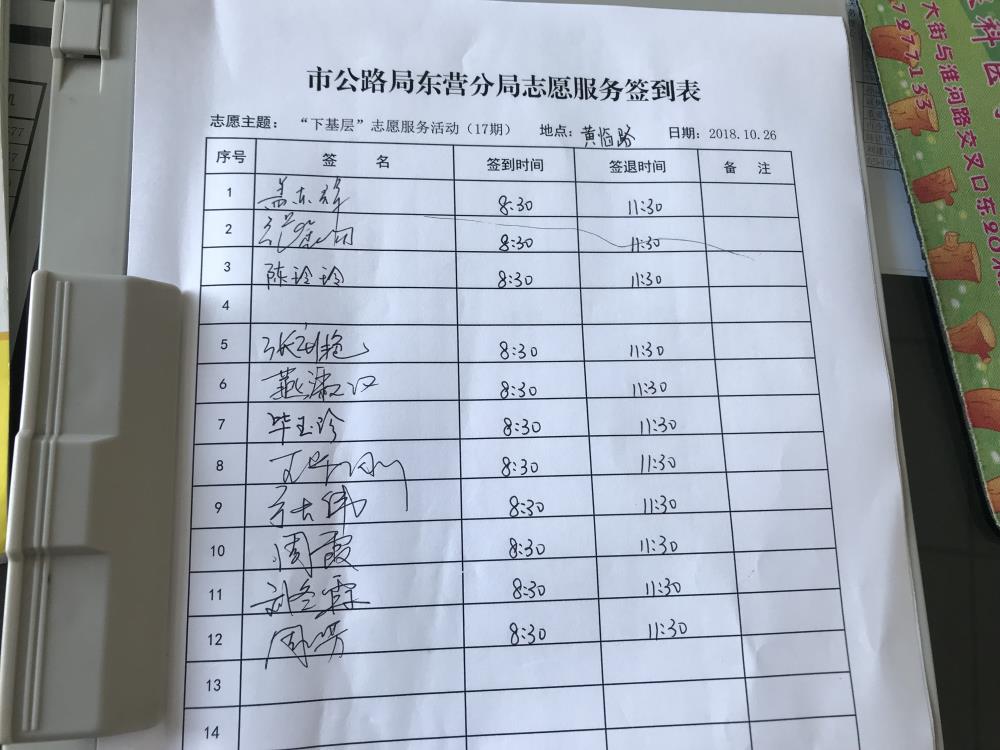 市公路局东营分局志愿服务签到表
志愿主题： “下基层”志愿服务活动（17期） 地点：黄恒路 日期：2018.10.26
序号 签 名 签到时间 签退时间 备 注
1 盖东辉 8:30 11:30
2 8:30 11:30
3 陈玲玲 8:30 11:30
4
5 8:30 11:30
6 8:30 11:30
7 毕玉珍 8:30 11:30
8 8:30 11:30
9 8:30 11:30
10 周霞 8:30 11:30
11 8:30 11:30
12 周芳 8:30 11:30
13
14
大街与淮河路交叉口东20米
7277133
科医